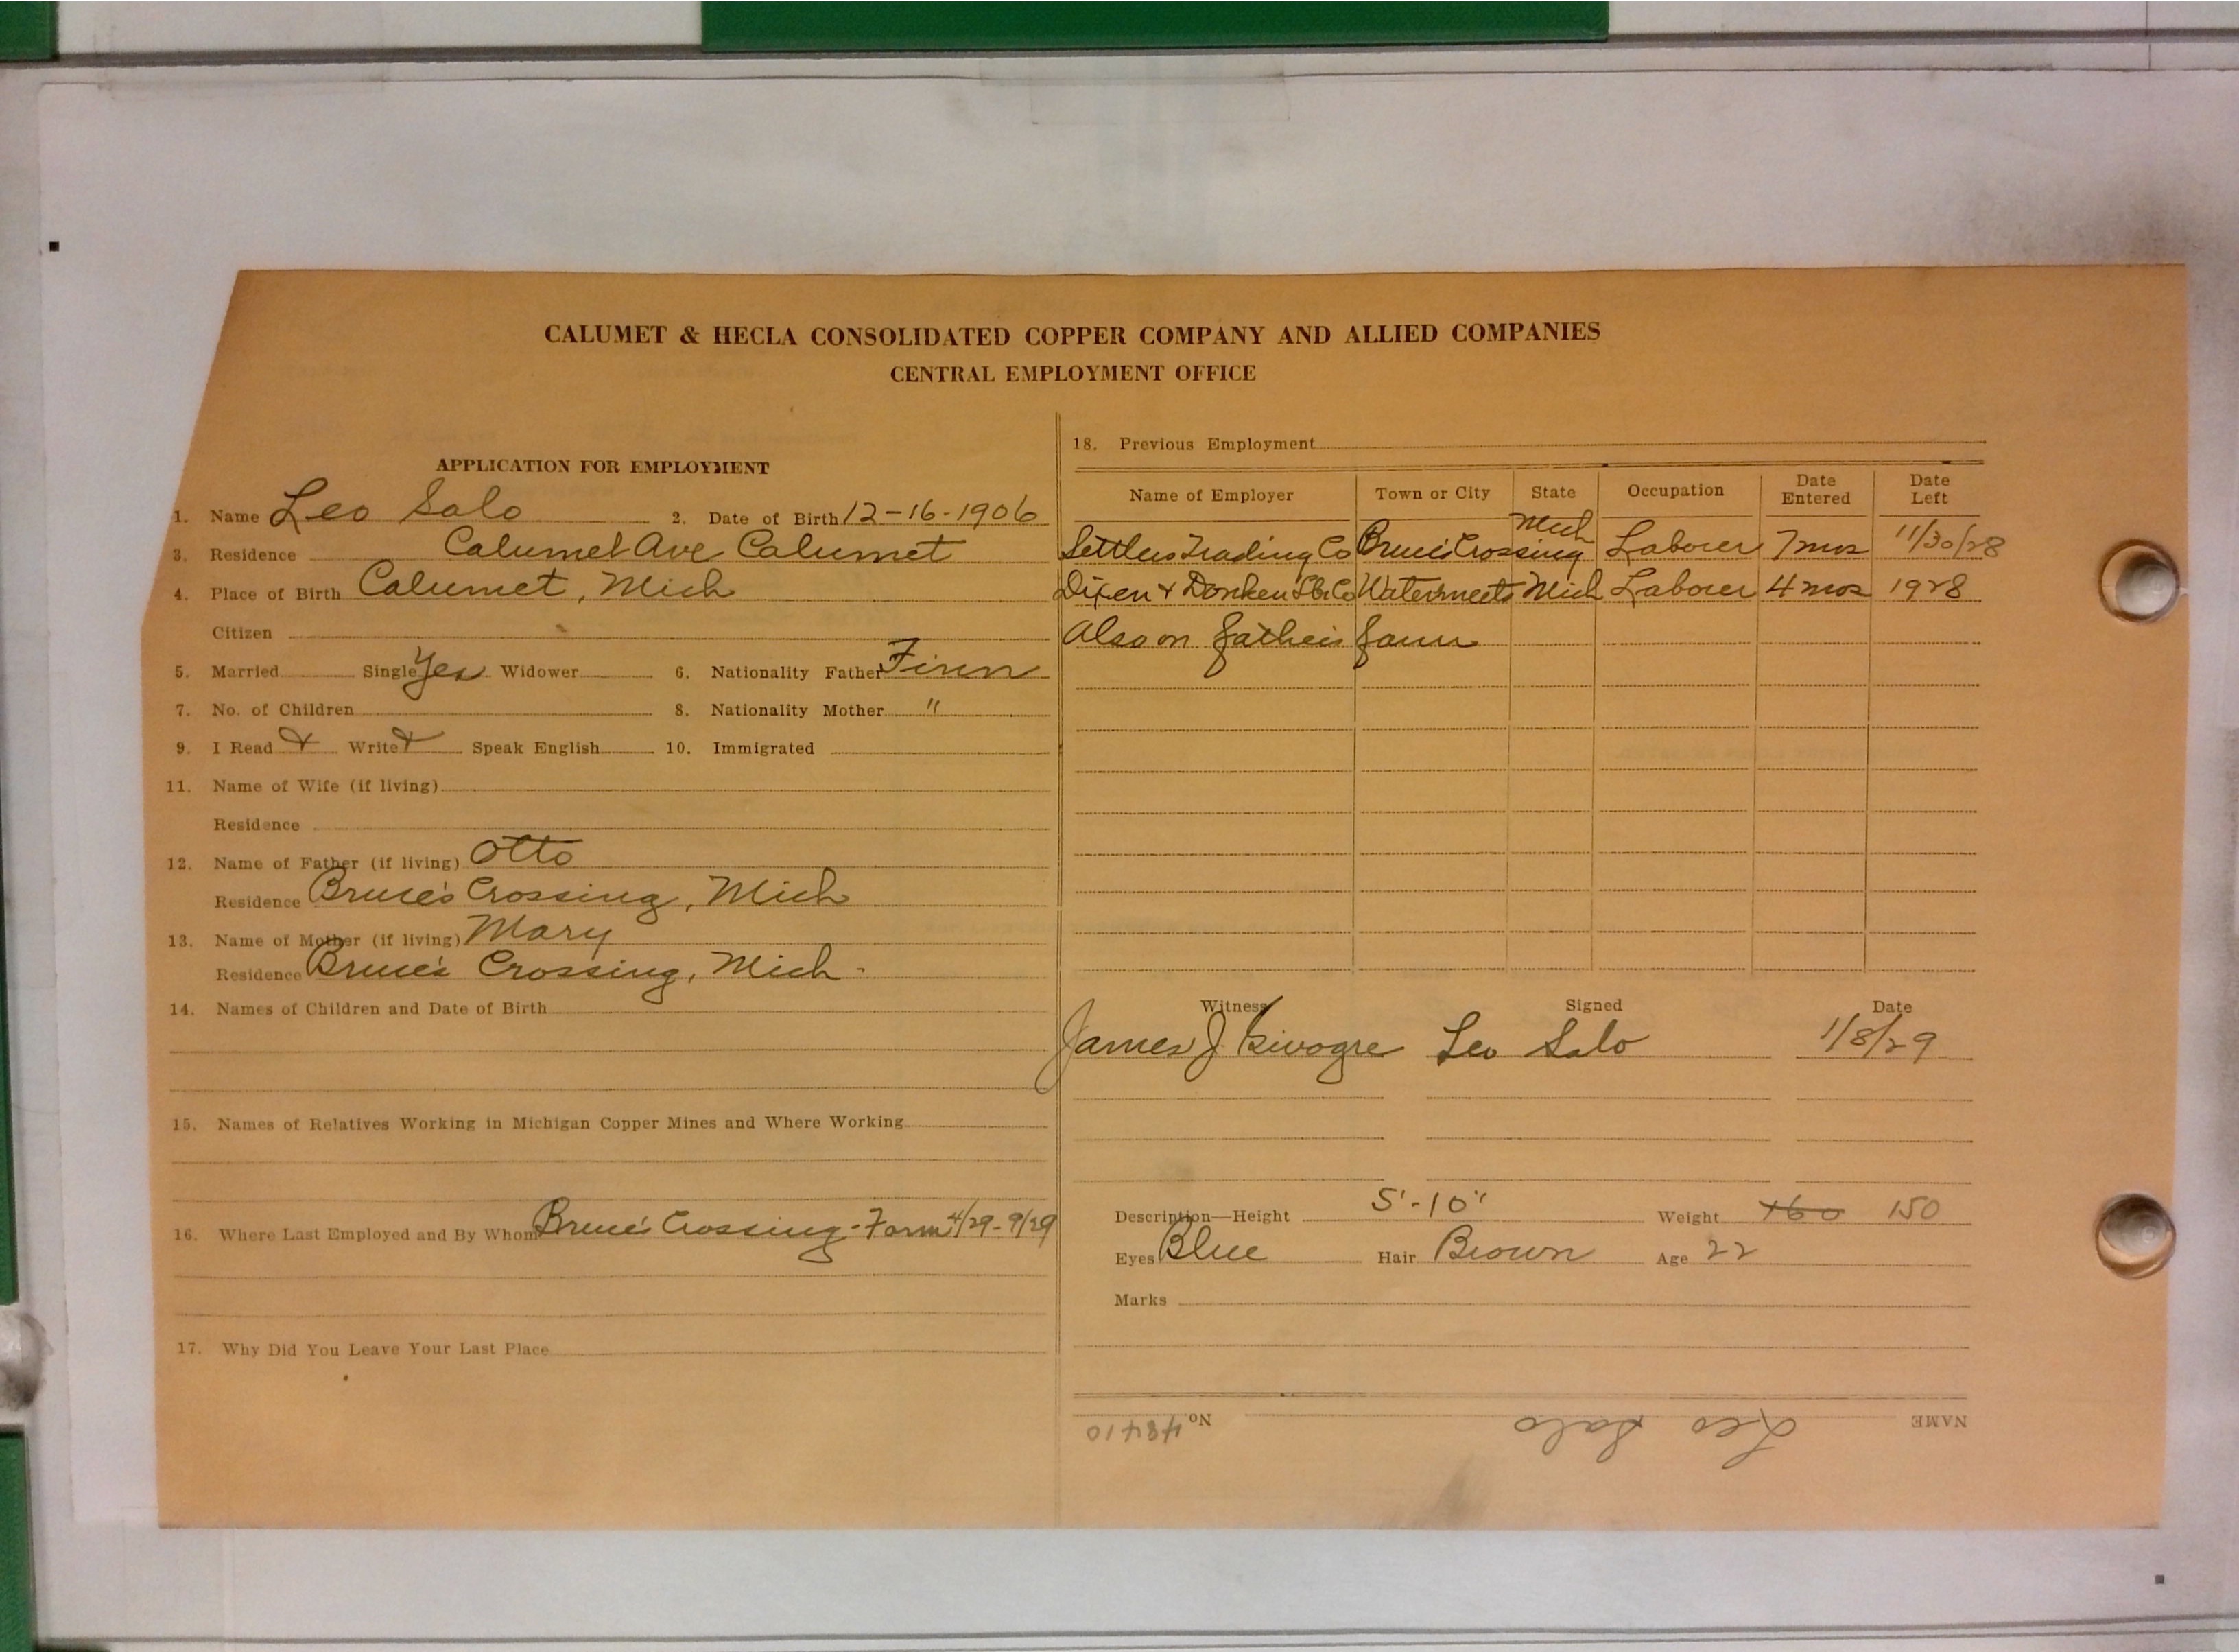 CALUMET & HECLA CONSOLIDATED COPPER COMPANY AND ALLIED COMPANIES
CENTRAL EMPLOYMENT OFFICE
APPLICATION FOR EMPLOYMENT
1. Name Leo Salo 2. Date of Birth 12-16-1906
3. Residence Calumet Ave Calumet
4. Place of Birth Calumet, Mich
Citizen
5. Married Single Yes Widower 6. Nationality Father Finn
7. No. of Children 8. Nationality Mother "
9. I Read Write Speak English 10. Immigrated
11. Name of Wife (if living)
Residence
12. Name of Father (if living) Otto
Residence Bruce's Crossing, Mich
13. Name of Mother (if living) Mary
Residence Bruce's Crossing, Mich.
14. Names of Children and Date of Birth
15. Names of Relatives Working in Michigan Copper Mines and Where Working
16. Where Last Employed and By Whom Bruce's Crossing - Farm 4/29-9/29
17. Why Did You Leave Your Last Place
18. Previous Employment
Name of Employer Town or City State Occupation Date Entered Date Left
Settlers Trading Co Bruce's Crossing Mich Laborer 7 mos 11/30/28
& Co Watersmeet Mich Laborer 4 mos 1928
Also on father's farm
Witness Signed Date
James J Leo Salo 1/8/29
Description—Height 5'-10" Weight 160 150
Eyes Blue Hair Brown Age 22
Marks
NAME Leo Salo No 48410